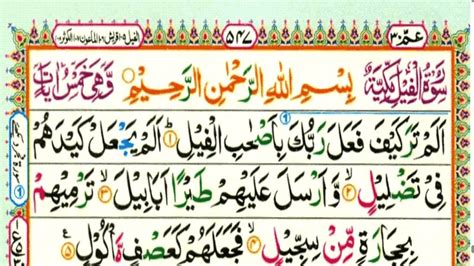 عمّ ٣٠
٥٤٧
الفيل ١٠٥ قريش ١٠٦ الماعون ١٠٧ الكوثر ١٠٨
سُوْرَةُ الْفِيْلِ مَكِّيَّةٌ بِسْمِ اللّٰهِ الرَّحْمٰنِ الرَّحِيْمِ وَهِيَ خَمْسُ اٰيَاتٍ
اَلَمْ تَرَ كَيْفَ فَعَلَ رَبُّكَ بِاَصْحٰبِ الْفِيْلِ ﴿١﴾ اَلَمْ يَجْعَلْ كَيْدَهُمْ
فِيْ تَضْلِيْلٍ ﴿٢﴾ وَّاَرْسَلَ عَلَيْهِمْ طَيْرًا اَبَابِيْلَ ﴿٣﴾ تَرْمِيْهِمْ
بِحِجَارَةٍ مِّنْ سِجِّيْلٍ ﴿٤﴾ فَجَعَلَهُمْ كَعَصْفٍ مَّاْكُوْلٍ ﴿٥﴾